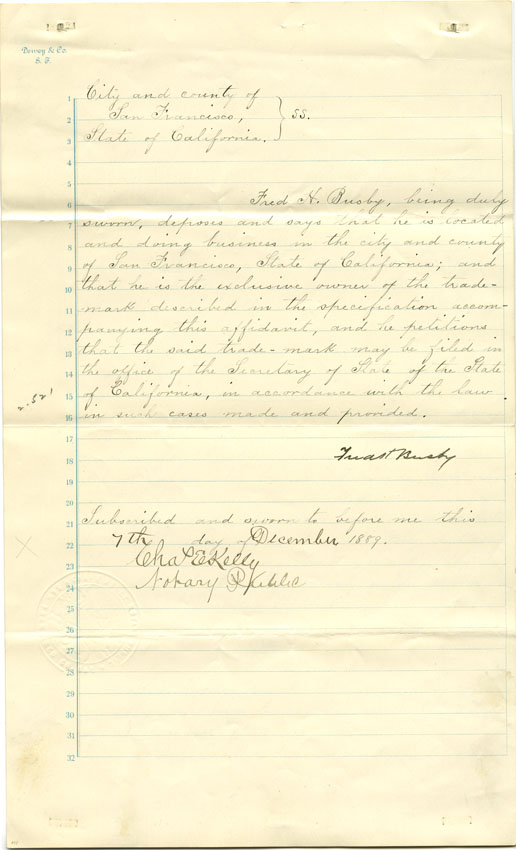 Dewey & Co.
S. F.
1 City and county of
2 San Francisco, } ss.
3 State of California.
4
5
6 Fred H. Busby, being duly
7 sworn, deposes and says that he is located
8 and doing business in the city and county
9 of San Francisco, State of California; and
10 that he is the exclusive owner of the trade-
11 mark described in the specification accom-
12 panying this affidavit, and he petitions
13 that the said trade-mark may be filed in
14 the office of the Secretary of State of the State
15 of California, in accordance with the law
16 in such cases made and provided.
17
18 Fred H Busby
19
20
21 Subscribed and sworn to before me this
22 7th day of December 1889.
23 Chas E Kelly
24 Notary Public
25
26
27
28
29
30
31
32